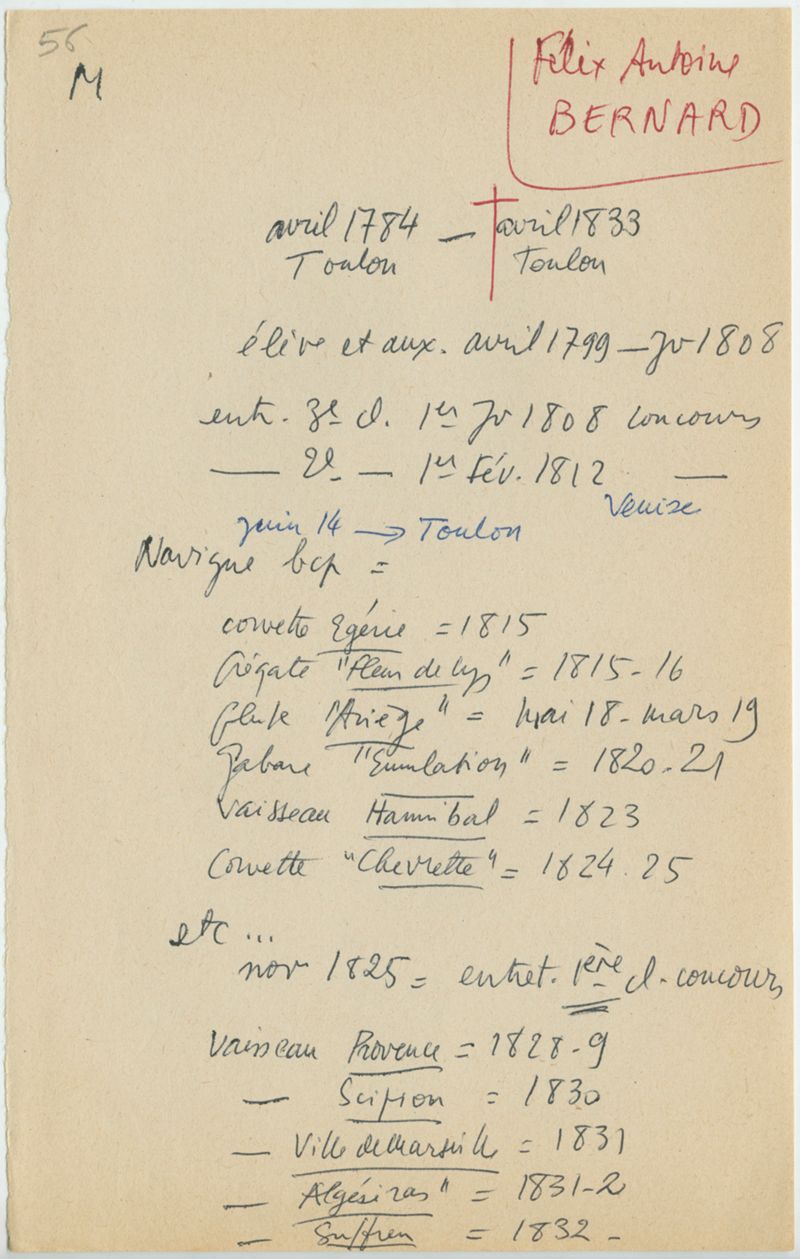 56
M
Félix Antoine
BERNARD
avril 1784 — avril 1833
Toulon Toulon
élève et aux. avril 1799 — Jv 1808
entr. 3e cl. 1er Jv 1808 concours
— 2e — 1er Fév. 1812 —
Venise
juin 14 → Toulon
Navigue bcp =
corvette Egérie = 1815
frégate "Fleur de Lys" = 1815-16
flute "Ariège" = Mai 18 - mars 19
gabare "Emulation" = 1820-21
vaisseau Hannibal = 1823
Corvette "Chevrette" = 1824.25
etc ...
nov 1825 = entret. 1ère cl. concours
Vaisseau Provence = 1828-9
— Scipion = 1830
— Ville de Marseille = 1831
— Algésiras" = 1831-2
— Suffren = 1832 -